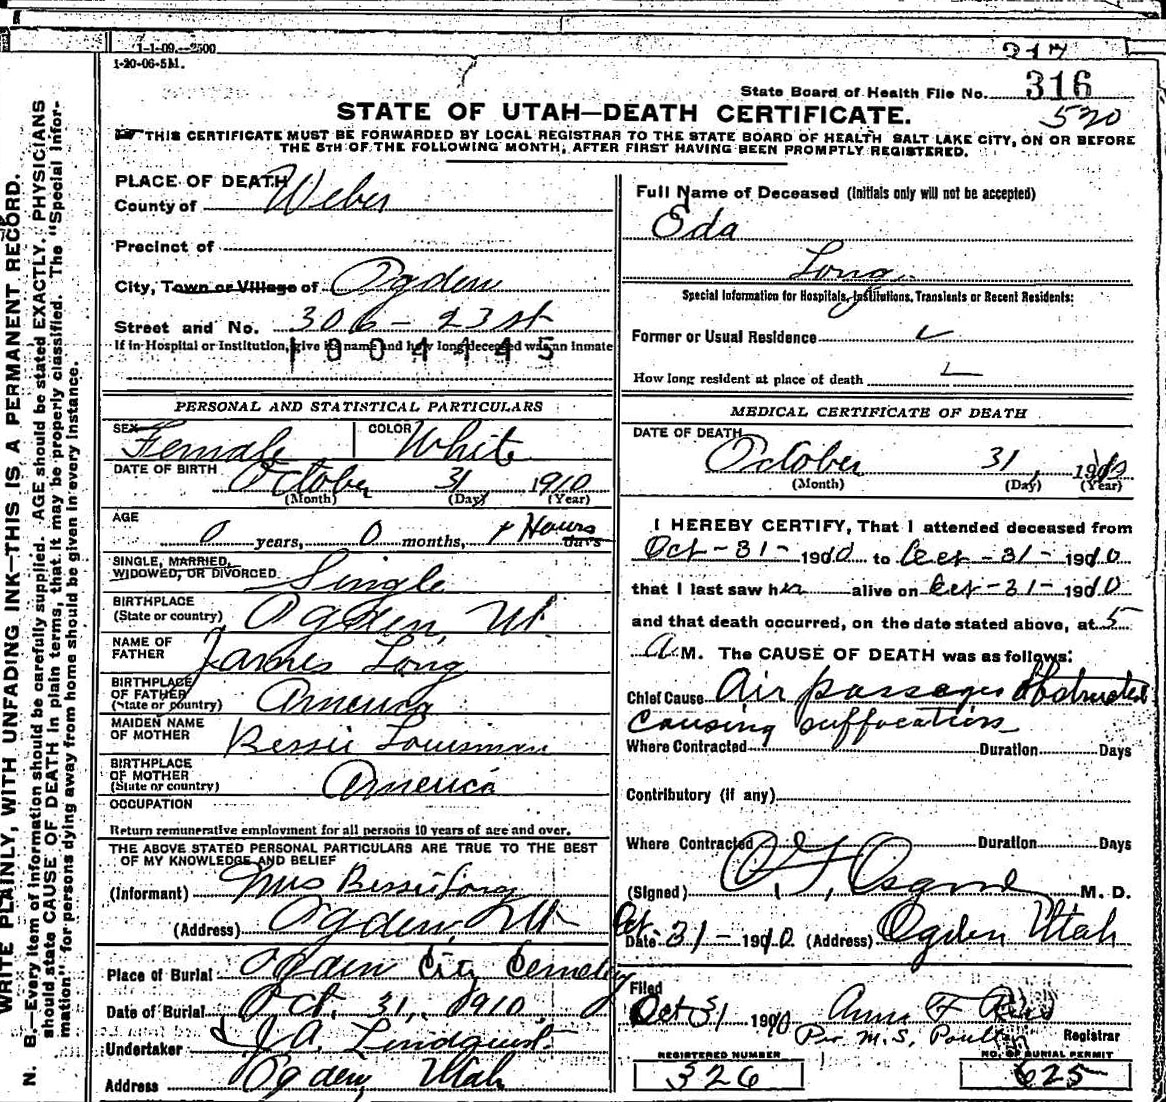 1-1-09.--2500
1-20-06-5M.
317
State Board of Health File No. 316
520
STATE OF UTAH—DEATH CERTIFICATE.
THIS CERTIFICATE MUST BE FORWARDED BY LOCAL REGISTRAR TO THE STATE BOARD OF HEALTH SALT LAKE CITY, ON OR BEFORE
THE 5TH OF THE FOLLOWING MONTH, AFTER FIRST HAVING BEEN PROMPTLY REGISTERED.
WRITE PLAINLY, WITH UNFADING INK—THIS IS A PERMANENT RECORD.
N. B.—Every item of information should be carefully supplied. AGE should be stated EXACTLY. PHYSICIANS
should state CAUSE OF DEATH in plain terms, that it may be properly classified. The "Special Infor-
mation" for persons dying away from home should be given in every instance.
PLACE OF DEATH
County of Weber
Precinct of
City, Town or Village of Ogden
Street and No. 306 - 23 st
If in Hospital or Institution, give its name and how long deceased was an inmate
1004145
PERSONAL AND STATISTICAL PARTICULARS
SEX Female COLOR White
DATE OF BIRTH October 31 1910
(Month) (Day) (Year)
AGE
0 years, 0 months, Hours days
SINGLE, MARRIED,
WIDOWED, OR DIVORCED Single
BIRTHPLACE
(State or country) Ogden, Ut.
NAME OF
FATHER James Long
BIRTHPLACE
OF FATHER
(State or country) America
MAIDEN NAME
OF MOTHER Bessie Louisman
BIRTHPLACE
OF MOTHER
(State or country) America
OCCUPATION
Return remunerative employment for all persons 10 years of age and over.
THE ABOVE STATED PERSONAL PARTICULARS ARE TRUE TO THE BEST
OF MY KNOWLEDGE AND BELIEF
(Informant) Mrs Bessie Long
(Address) Ogden, Ut
Place of Burial Ogden City Cemetery
Date of Burial Oct. 31, 1910
Undertaker J.A. Lindquist
Address Ogden, Utah
Full Name of Deceased (Initials only will not be accepted)
Eda
Long
Special Information for Hospitals, Institutions, Transients or Recent Residents:
Former or Usual Residence
How long resident at place of death
MEDICAL CERTIFICATE OF DEATH
DATE OF DEATH
October 31, 1910
(Month) (Day) (Year)
I HEREBY CERTIFY, That I attended deceased from
Oct - 31 - 1910 to Oct - 31 - 1910
that I last saw her alive on Oct - 31 - 1910
and that death occurred, on the date stated above, at 5
A M. The CAUSE OF DEATH was as follows:
Chief Cause Air passages obstructed
causing suffocation
Where Contracted Duration Days
Contributory (if any)
Where Contracted Duration Days
(Signed) Osgood M. D.
Oct
Date 31 - 1910 (Address) Ogden Utah
Filed
Oct 31 1910 Anna F
Per M.S. Registrar
REGISTERED NUMBER NO. OF BURIAL PERMIT
326 625